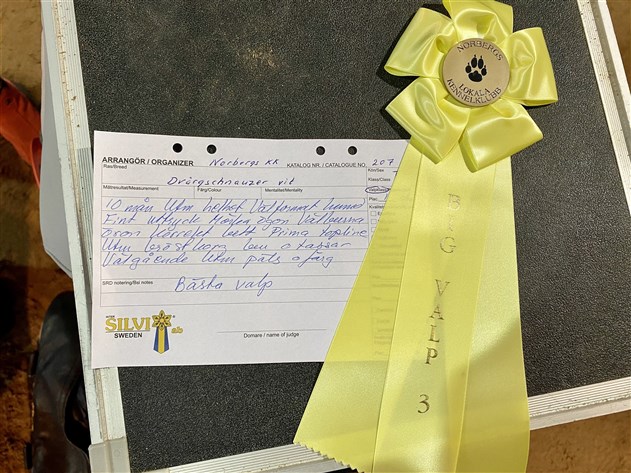 NORBERGS
LOKALA
KENNELKLUBB
ARRANGÖR / ORGANIZER Norbergs KK KATALOG NR. / CATALOGUE NO. 207
Ras/Breed Dvärgschnauzer vit Kön/Sex
Mätresultat/Measurement Färg/Colour Mentalitet/Mentality Klass/Class
10 mån Utm helhet Välformat huvud
Fint uttryck Mörka ögon Välburna
öron Korrekt bett Prima topline
Utm bröstkorg ben o tassar
Välgående Utm päls o färg
SRD notering/Bei notes Bästa valp
SILVI ab
SWEDEN
Domare / name of judge
BIG VALP 3